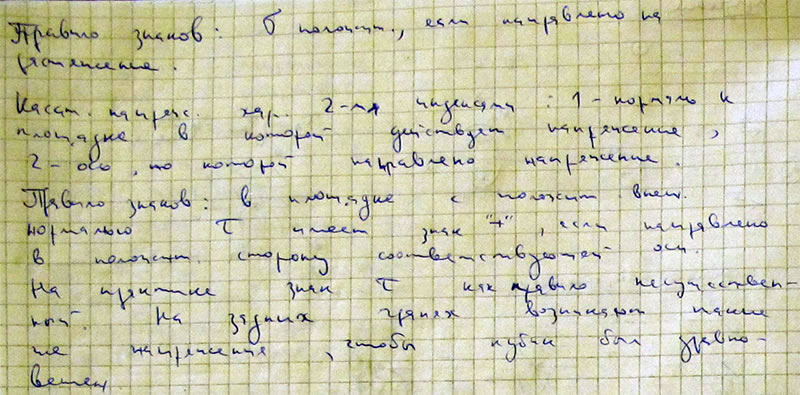 Правило знаков: σ положит., если направлено на
растяжение.
Касат. напряж. хар. 2-мя индексами: 1 - нормаль к
площадке в которой действует напряжение,
2 - ось, по которой направлено напряжение.
Правило знаков: в площадке с положит внеш.
нормалью τ имеет знак "+", если направлено
в положит. сторону соответствующей оси.
На практике знак τ как правило несуществен-
ный. На задних гранях возникают такие
же напряжения, чтобы кубик был уравно-
вешен